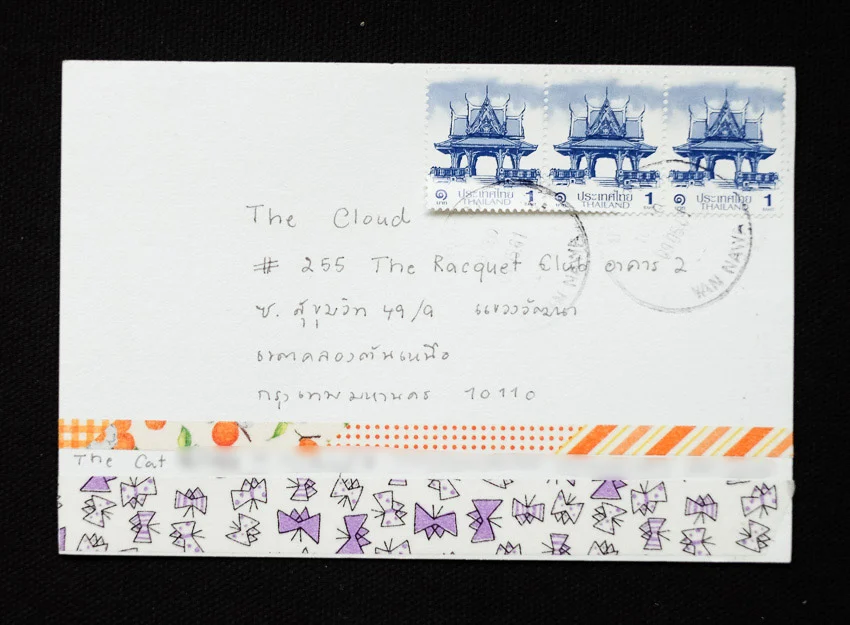 ประเทศไทย ประเทศไทย ประเทศไทย
THAILAND THAILAND THAILAND
๑ บาท 1 ๑ บาท 1 ๑ บาท 1
The Cloud
# 255 The Racquet Club อาคาร 2
ซ. สุขุมวิท 49/9 แขวงวัฒนา
เขตคลองตันเหนือ
กรุงเทพมหานคร 10110
YAN NAWA
YAN NAWA
The Cat